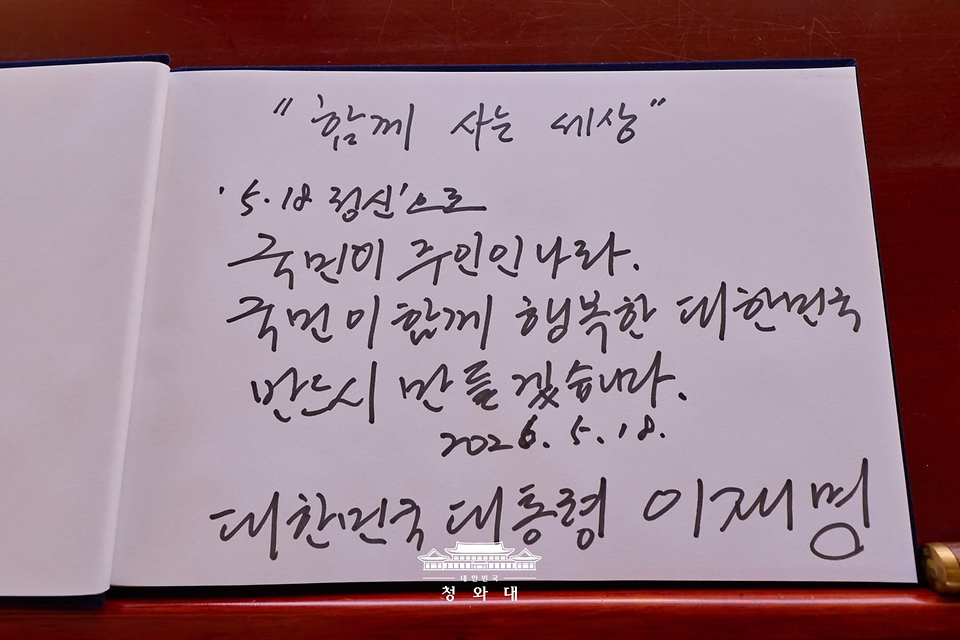 "함께 사는 세상"
'5.18 정신'으로
국민이 주인인 나라.
국민이 함께 행복한 대한민국
반드시 만들겠습니다.
2026. 5. 18.
대한민국 대통령 이재명
대한민국
청와대